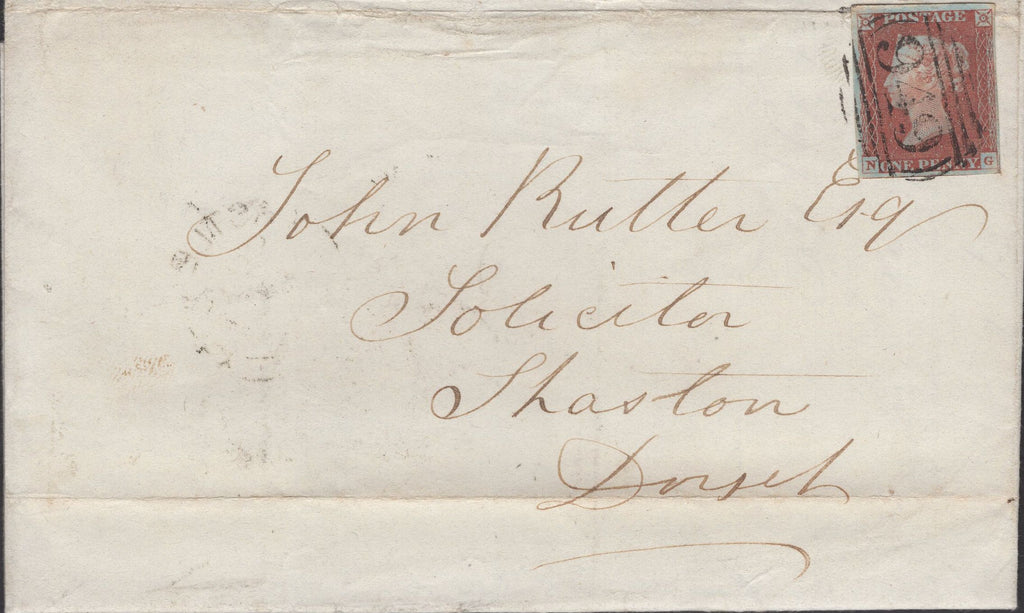 POSTAGE
N ONE PENNY G
John Rutter Esq
Solicitor
Shaston
Dorset